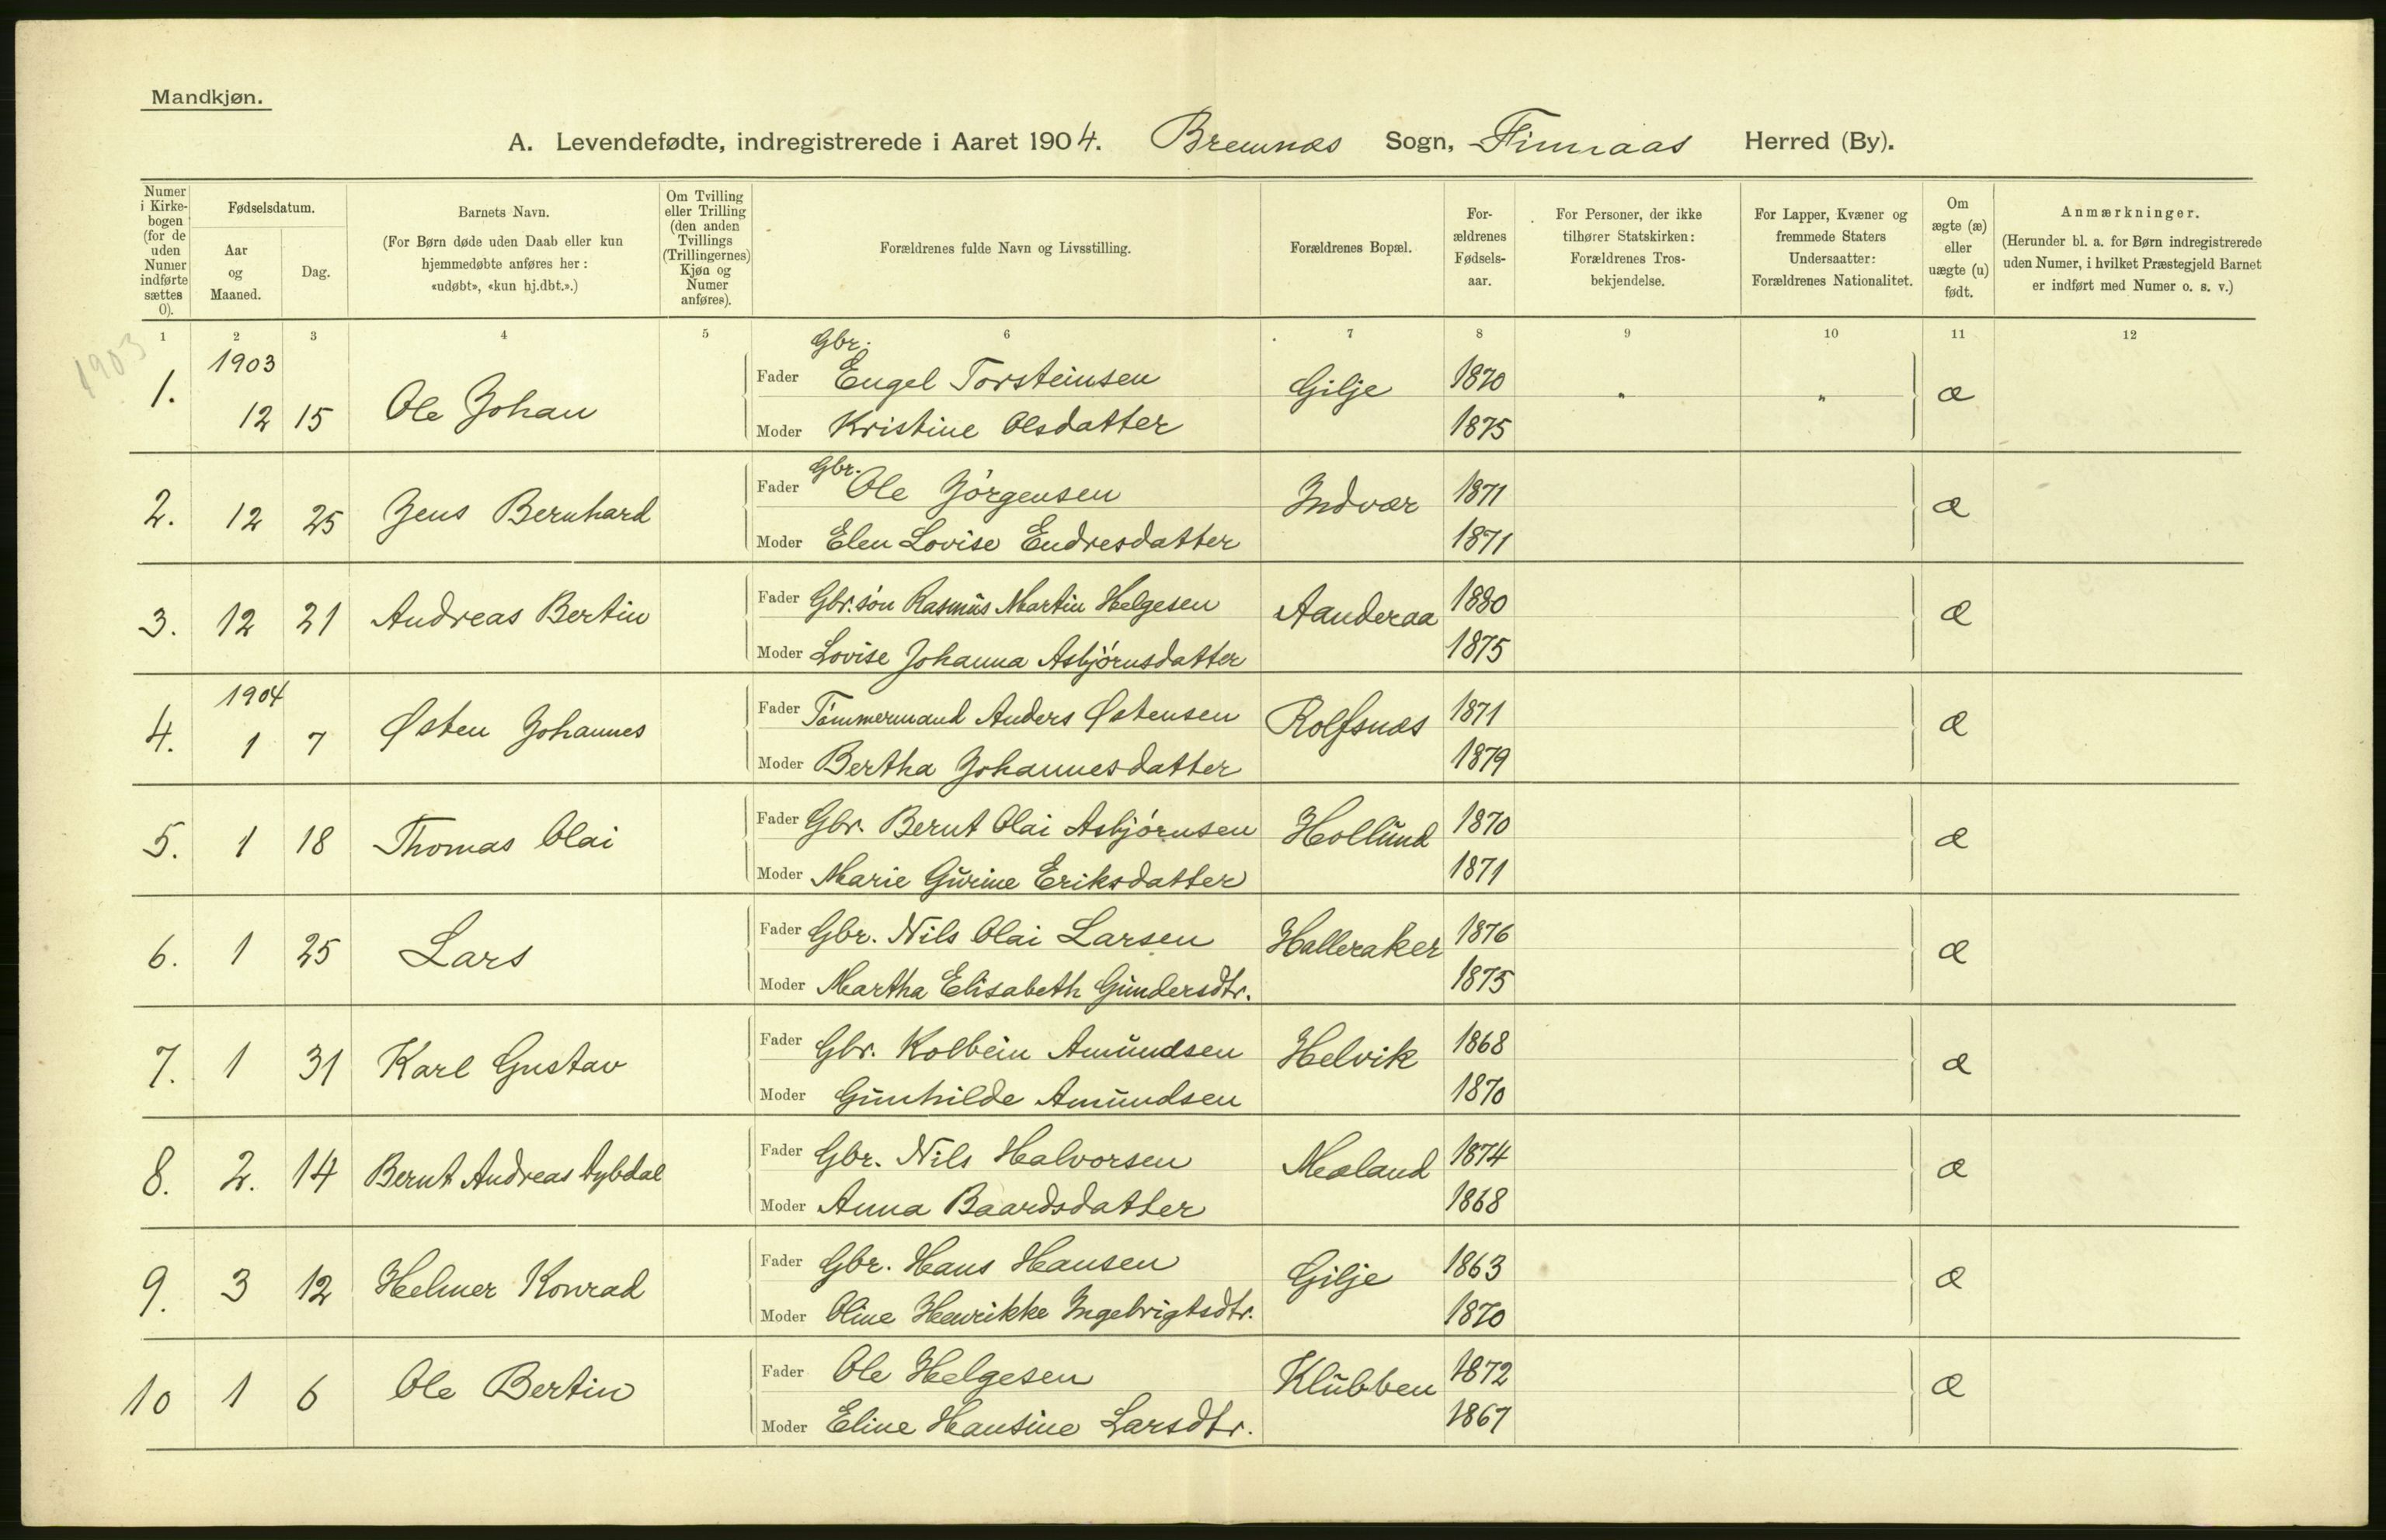 Mandkjøn.
A. Levendefødte, indregistrerede i Aaret 1904. Bremnæs Sogn, Finnaas Herred (By).
Numer i Kirkebogen (for de uden Numer indførte sættes 0).
Fødselsdatum.
Aar og Maaned.
Dag.
Barnets Navn.
(For Børn døde uden Daab eller kun hjemmedøbte anføres her: «udøbt», «kun hj.dbt.».)
Om Tvilling eller Trilling (den anden Tvillings (Trillingernes) Kjøn og Numer anføres).
Forældrenes fulde Navn og Livsstilling.
Forældrenes Bopæl.
Forældrenes Fødselsaar.
For Personer, der ikke tilhører Statskirken: Forældrenes Trosbekjendelse.
For Lapper, Kvæner og fremmede Staters Undersaatter: Forældrenes Nationalitet.
Om ægte (æ) eller uægte (u) født.
Anmærkninger.
(Herunder bl. a. for Børn indregistrerede uden Numer, i hvilket Præstegjeld Barnet er indført med Numer o. s. v.)
1 2 3 4 5 6 7 8 9 10 11 12
1903
1. 1903 12 15 Ole Johan Fader Gbr. Engel Torsteinsen Gilje 1870 " " æ
Moder Kristine Olsdatter 1875
2. 12 25 Jens Bernhard Fader Gbr. Ole Jörgensen Indvær 1871 æ
Moder Elen Lovise Endresdatter 1871
3. 12 21 Andreas Bertin Fader Gbr.sön Rasmus Martin Helgesen Aanderaa 1880 æ
Moder Lovise Johanna Asbjörnsdatter 1875
4. 1904 1 7 Østen Johannes Fader Tömmermand Anders Østensen Rolfsnæs 1871 æ
Moder Bertha Johannesdatter 1879
5. 1 18 Thomas Olai Fader Gbr. Bernt Olai Asbjörnsen Hollund 1870 æ
Moder Marie Gurine Eriksdatter 1871
6. 1 25 Lars Fader Gbr. Nils Olai Larsen Halleraker 1876 æ
Moder Martha Elisabeth Gundersdtr. 1875
7. 1 31 Karl Gustav Fader Gbr. Kolbein Amundsen Helvik 1868 æ
Moder Gunhilde Amundsen 1870
8. 2. 14 Bernt Andreas Dybdal Fader Gbr. Nils Halvorsen Mæland 1874 æ
Moder Anna Baardsdatter 1868
9. 3 12 Helmer Konrad Fader Gbr. Hans Hansen Gilje 1863 æ
Moder Oline Henrikke Ingebrigtsdtr. 1870
10 1 6 Ole Bertin Fader Ole Helgesen Klubben 1872 æ
Moder Eline Hansine Larsdtr. 1867